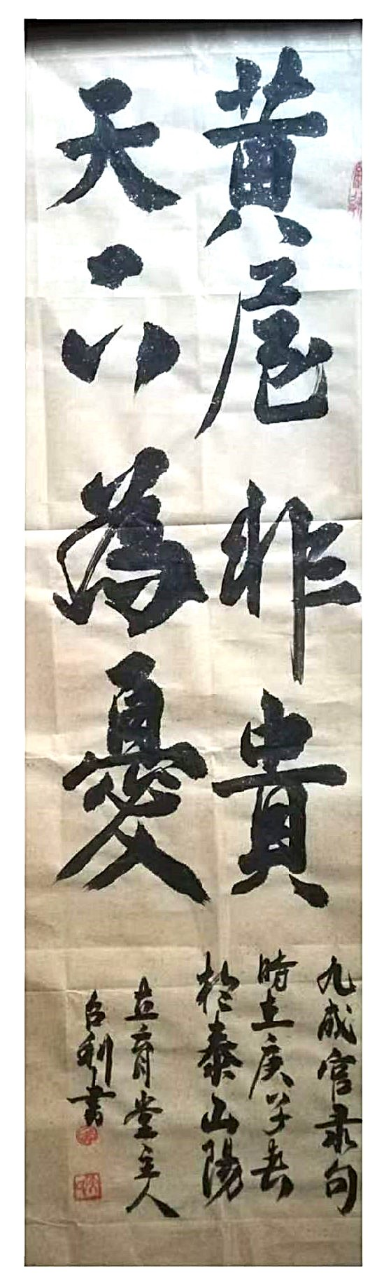 黄屋非貴
天下為憂
九成宫录句
時在庚子春
於泰山陽
育堂主人
書